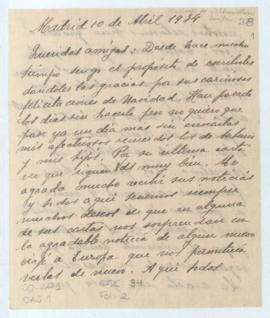 Madrid 10 de Abril 1934
Queridas amigas: Desde hace mucho
tiempo tengo el propósito de escribirles
dándoles las gracias por sus cariñosas
felicitaciones de Navidad. Han pasado
los días sin hacerlo pero no quiero que
pase ya un día mas sin enviarles
mis afectuosos recuerdos los de
y mis hijos. Por su ultima carta
veo que siguen Vds muy bien. Me
agrada mucho recibir sus noticias
y todos aquí tenemos siempre
muchos deseos de que en alguna
de sus cartas nos sorprendan con
la agradable noticia de algun nuevo
viaje a Europa que nos permitiera
verlas de nuevo. Aquí todos
CAJ 1
FOL 2
34